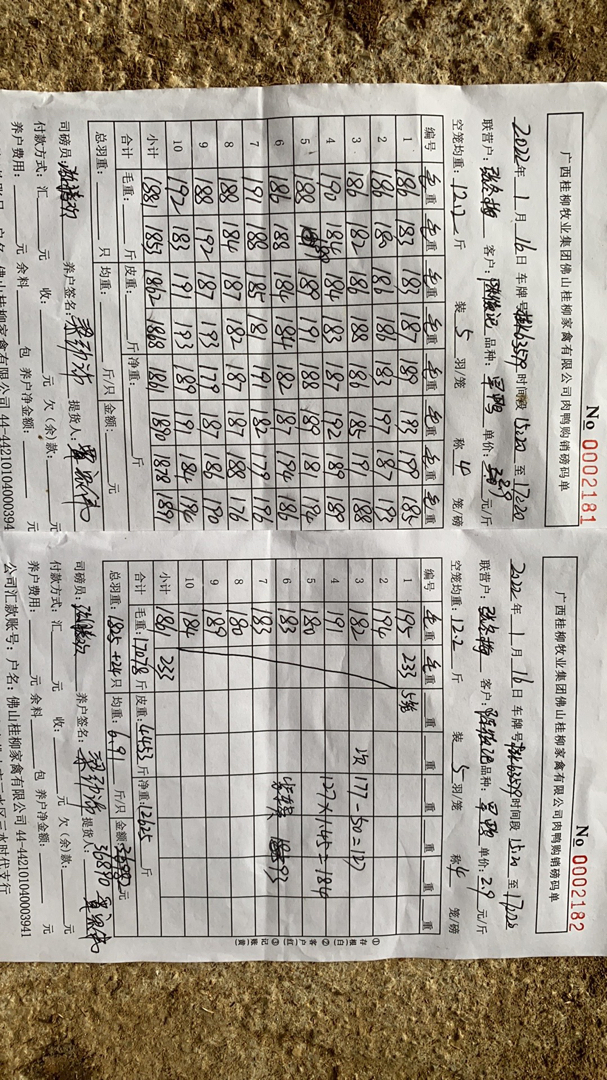 № 0002181
广西桂柳牧业集团佛山桂柳家禽有限公司肉鸭购销磅码单
2022年 1月 16日 车牌号 时间段 1520 至 1720
联营户: 客户: 品种: 旱鸭 单价: 元/斤
空笼均重: 12.2 斤 装 5 羽/笼 称 4 笼/磅
编号 毛重 毛重 毛重 毛重 毛重 毛重 毛重 毛重
1 186 183 183 187 189 193 199 185
2 186 180 186 186 183 197 187 193
3 186 182 181 188 186 185 197 188
4 190 184 184 183 187 192 189 189
5 188 189 191 188 189 181 194
6 186 188 184 184 182 187 194 186
7 191 188 185 181 191 182 179 196
8 188 184 187 182 187 187 188 176
9 188 192 187 193 179 187 186 190
10 192 183 191 193 189 191 184 194
小计 1881 1853 1862 1868 1861 1890 1878 1891
合计 毛重: 斤 皮重: 斤 净重: 斤
总羽重: 只 均重: 斤/只 金额: 元
司磅员: 养户签名: 提货人:
付款方式: 汇 元 收: 元 欠(余)款: 元
养户费用: 元 余料 包 养户净金额: 元
44-44210104000394
№ 0002182
广西桂柳牧业集团佛山桂柳家禽有限公司肉鸭购销磅码单
2022年 1月 16日 车牌号 时间段 1520 至 1720
联营户: 客户: 品种: 旱鸭 单价: 2.9 元/斤
空笼均重: 12.2 斤 装 5 羽/笼 称 4 笼/磅
编号 毛重 毛重 重 重 重 重 重 重
1 195 233 5笼
2 194
3 182 次 177-50=127
4 191 127×1.45=184
5 180
6 183
7 183
8 180
9 189
10 184
小计 1861 233
合计 毛重: 17078 斤 皮重: 4453 斤 净重: 12625 斤
总羽重: 1825+24 只 均重: 6.91 斤/只 金额: 元
36890
司磅员: 养户签名: 提货人:
付款方式: 汇 元 收: 元 欠(余)款: 元
养户费用: 元 余料 包 养户净金额: 元
公司汇款账号: 户名: 佛山桂柳家禽有限公司 44-442101040003941
①存根(白) ②客户(红) ③记账(黄)